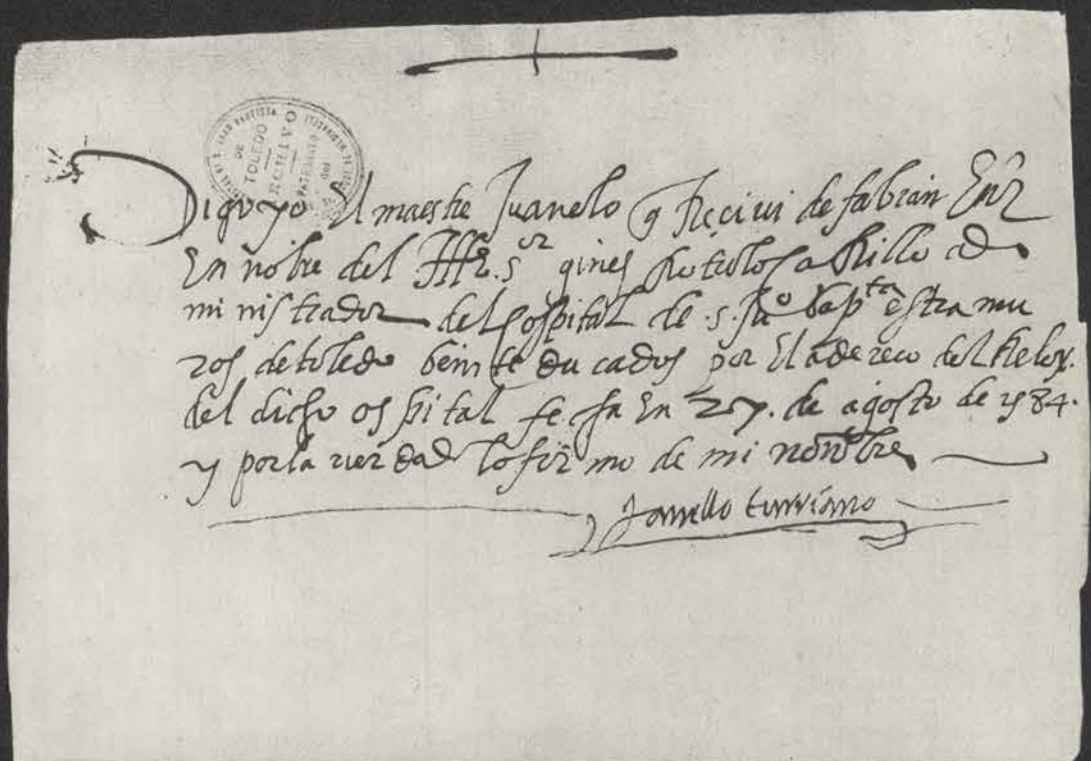 DE
TOLEDO
ARCHIVO
Digo yo El maestre Juanelo q Recivi de fabian Enrz
En nõbre del Ille. sor gines
ministrador del ospital de s. juo bapta estramu
ros de toledo beinte ducados por El adereco del Relox.
del dicho ospital fecha En 27. de agosto de 1584.
y por la verdad lo firmo de mi nonbre
Janello turriano